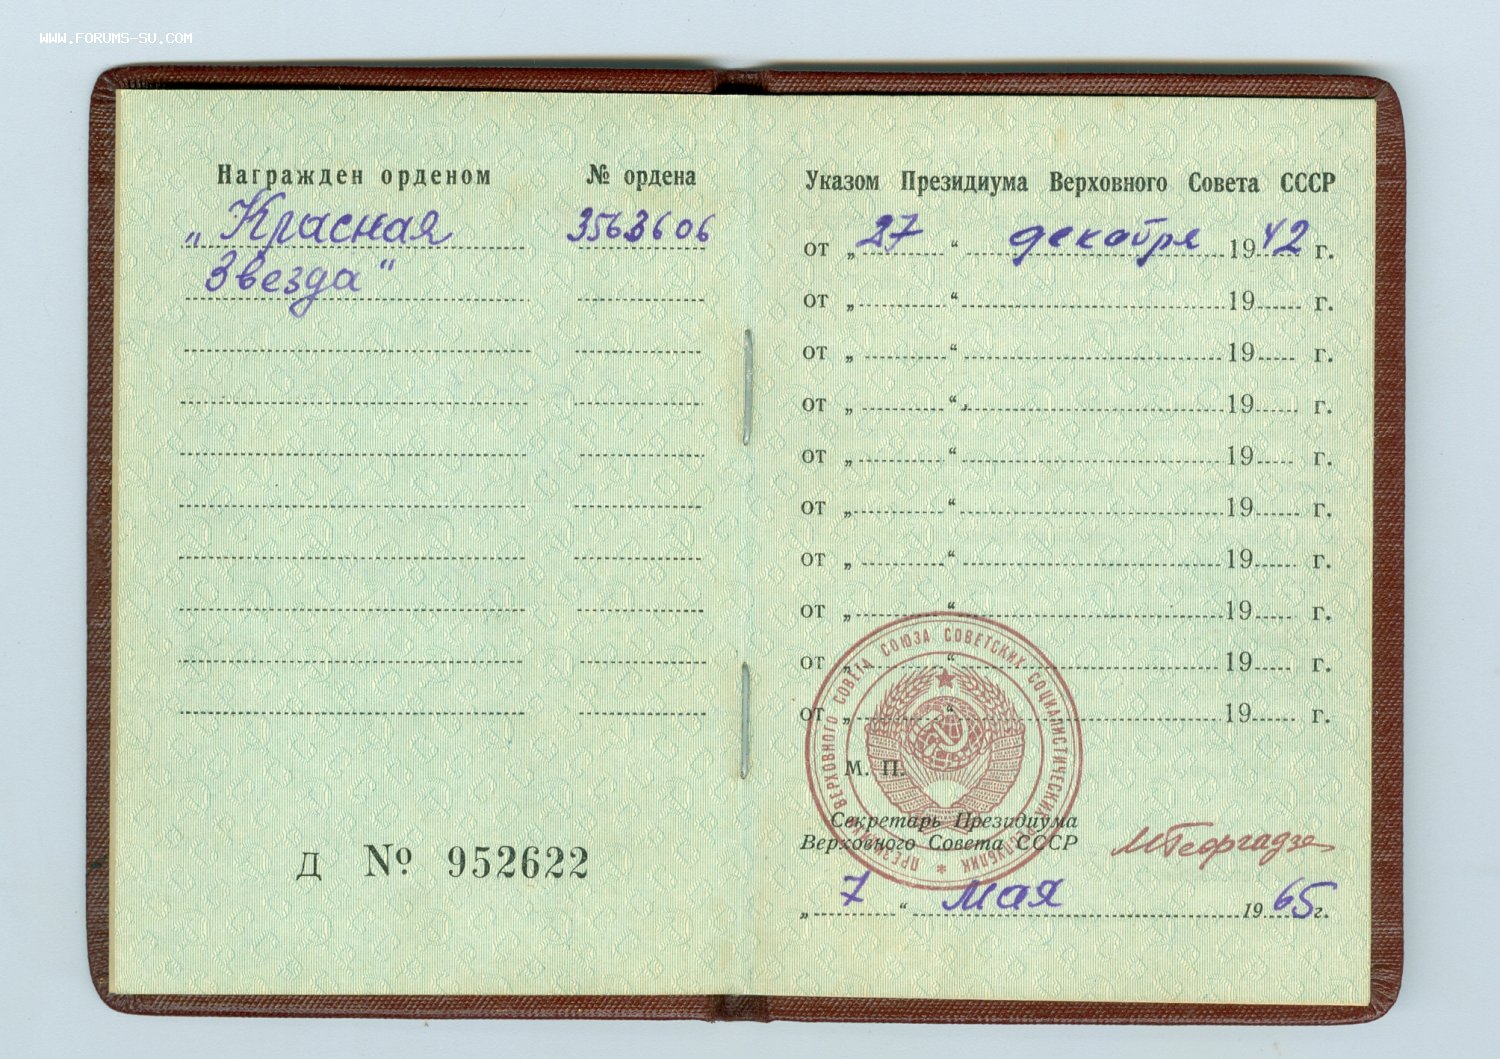 WWW.FORUMS-SU.COM
Награжден орденом
№ ордена
„Красная
3563606
Звезда“
Д № 952622
Указом Президиума Верховного Совета СССР
от „27“ декабря 1942 г.
от „ “ 19 г.
от „ “ 19 г.
от „ “ 19 г.
от „ “ 19 г.
от „ “ 19 г.
от „ “ 19 г.
от „ “ 19 г.
от „ “ 19 г.
от „ “ 19 г.
М. П.
ПРЕЗИДИУМ ВЕРХОВНОГО СОВЕТА СОЮЗА СОВЕТСКИХ СОЦИАЛИСТИЧЕСКИХ РЕСПУБЛИК *
Секретарь Президиума
Верховного Совета СССР
МГеоргадзе
„7“ мая 1965 г.